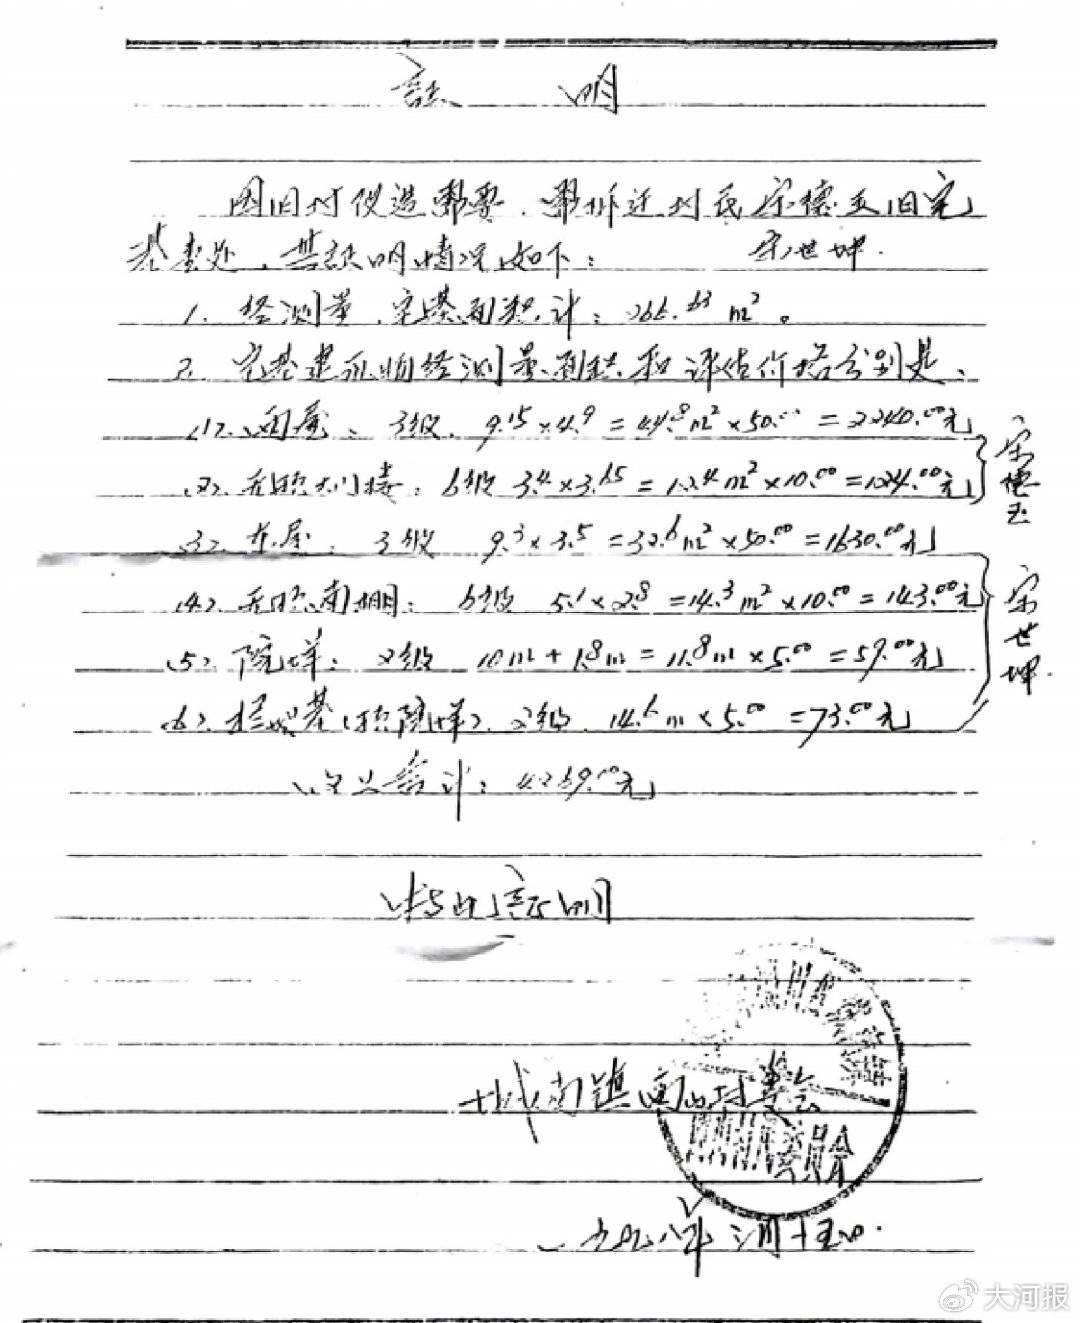 証 明
因旧村改造需要,需拆迁村民宗德玉旧宅
基壹处,其証明情况如下: 宗世坤.
1. 经测量,宅基面积计:266.63 m²。
2. 宅基建筑物经测量面积和评估价格分别是、
(1). 西屋、 3级、 9.15×4.9=44.8m²×50.00=2240.00元
(2). 无照大门楼: 6级 3.4×3.65=12.4m²×10.00=124.00元
宗德玉
(3). 东屋: 3级 9.3×3.5=32.6m²×50.00=1630.00元
(4). 无照南棚: 6级 5.1×2.8=14.3m²×10.00=143.00元
(5). 院墙: 2级 10m+1.8m=11.8m×5.00=59.00元
(6). 基(院墙). 2级 14.6m×5.00=73.00元
宗世坤.
以上合计:4269.00元
特此証明
城南镇西村委会
委员会
一九九八年二月十五日.
大河报